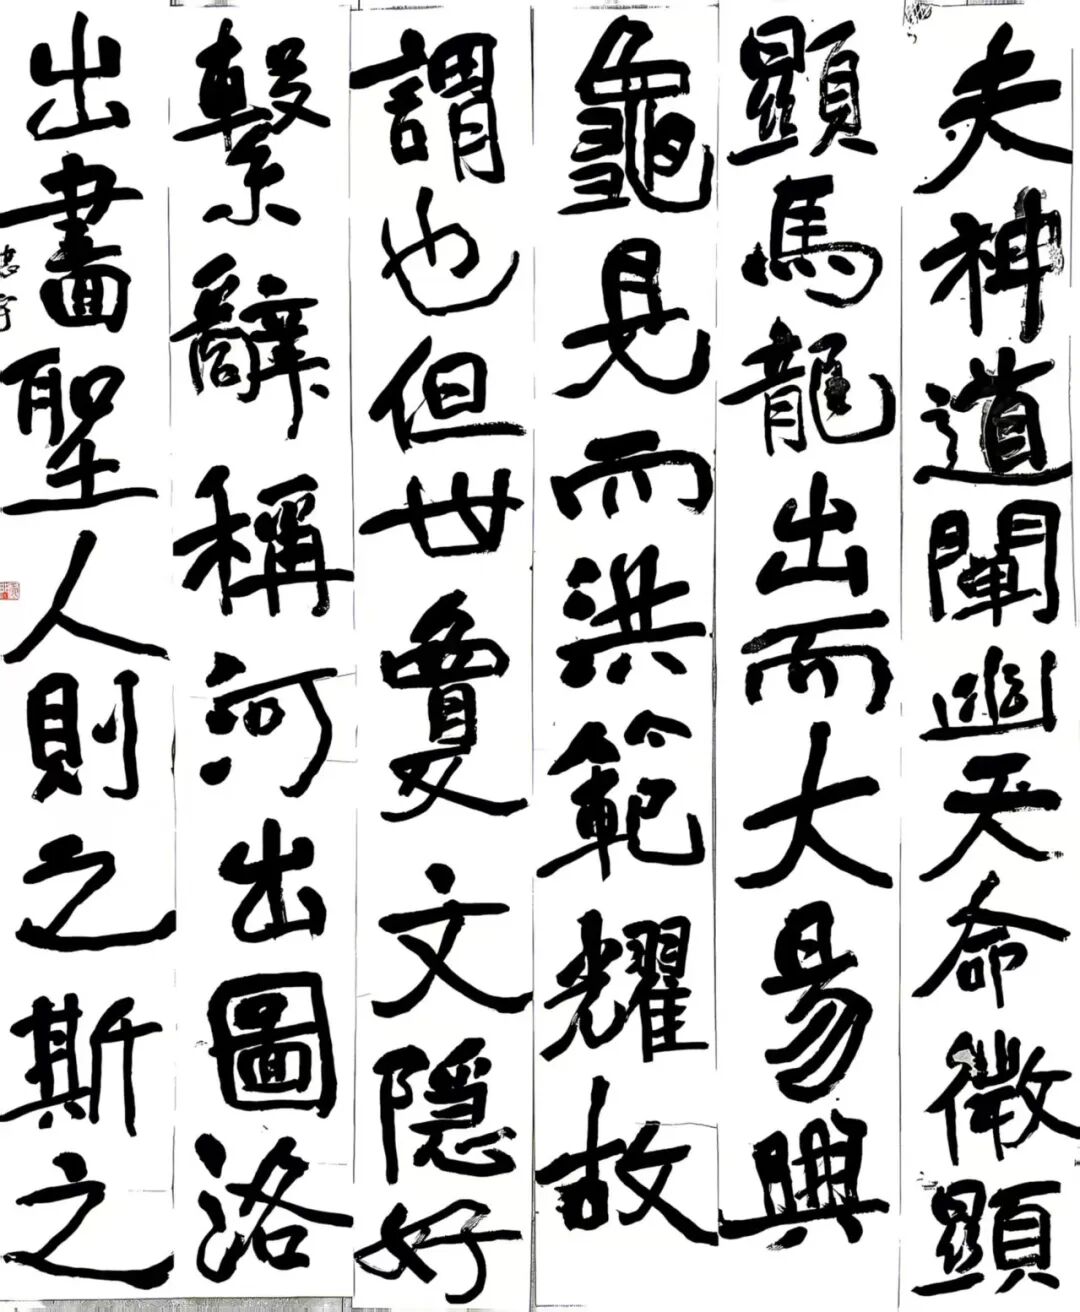 夫神道闡幽天命微顯
顯馬龍出而大易興
龜見而洪範耀故
謂也但世夐文隱好
繫辭稱河出圖洛
出畫聖人則之斯之